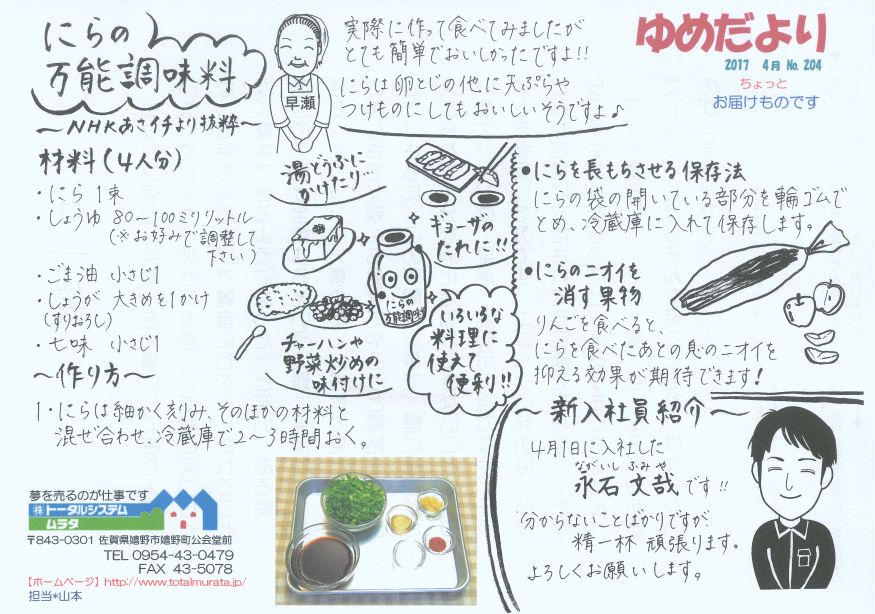 にらの
万能調味料
～NHKあさイチより抜粋～
早瀬
実際に作って食べてみましたが
とても簡単でおいしかったですよ!!
にらは卵とじの他に天ぷらや
つけものにしてもおいしいそうですよ♪
ゆめだより
2017 4月 No. 204
ちょっと
お届けものです
材料(4人分)
・にら 1束
・しょうゆ 80～100ミリリットル
(※お好みで調整して
下さい)
・ごま油 小さじ1
・しょうが 大きめを1かけ
(すりおろし)
・七味 小さじ1
～作り方～
1・にらは細かく刻み、そのほかの材料と
混ぜ合わせ、冷蔵庫で2～3時間おく。
湯どうふに
かけたり…
ギョーザの
たれに!!
にらの
万能調味料
チャーハンや
野菜炒めの
味付けに
いろいろな
料理に
使えて
便利!!
●にらを長もちさせる保存法
にらの袋の開いている部分を輪ゴムで
とめ、冷蔵庫に入れて保存します。
●にらのニオイを
消す果物
りんごを食べると、
にらを食べたあとの息のニオイを
抑える効果が期待できます!
～新入社員紹介～
4月1日に入社した
ながいし ふみや
永石 文哉です!!
分からないことばかりですが
精一杯 頑張ります。
よろしくお願いします。
夢を売るのが仕事です
㈱トータルシステム
ムラタ
〒843-0301 佐賀県嬉野市嬉野町公会堂前
TEL 0954-43-0479
FAX 43-5078
【ホームページ】http://www.totalmurata.jp/
担当*山本